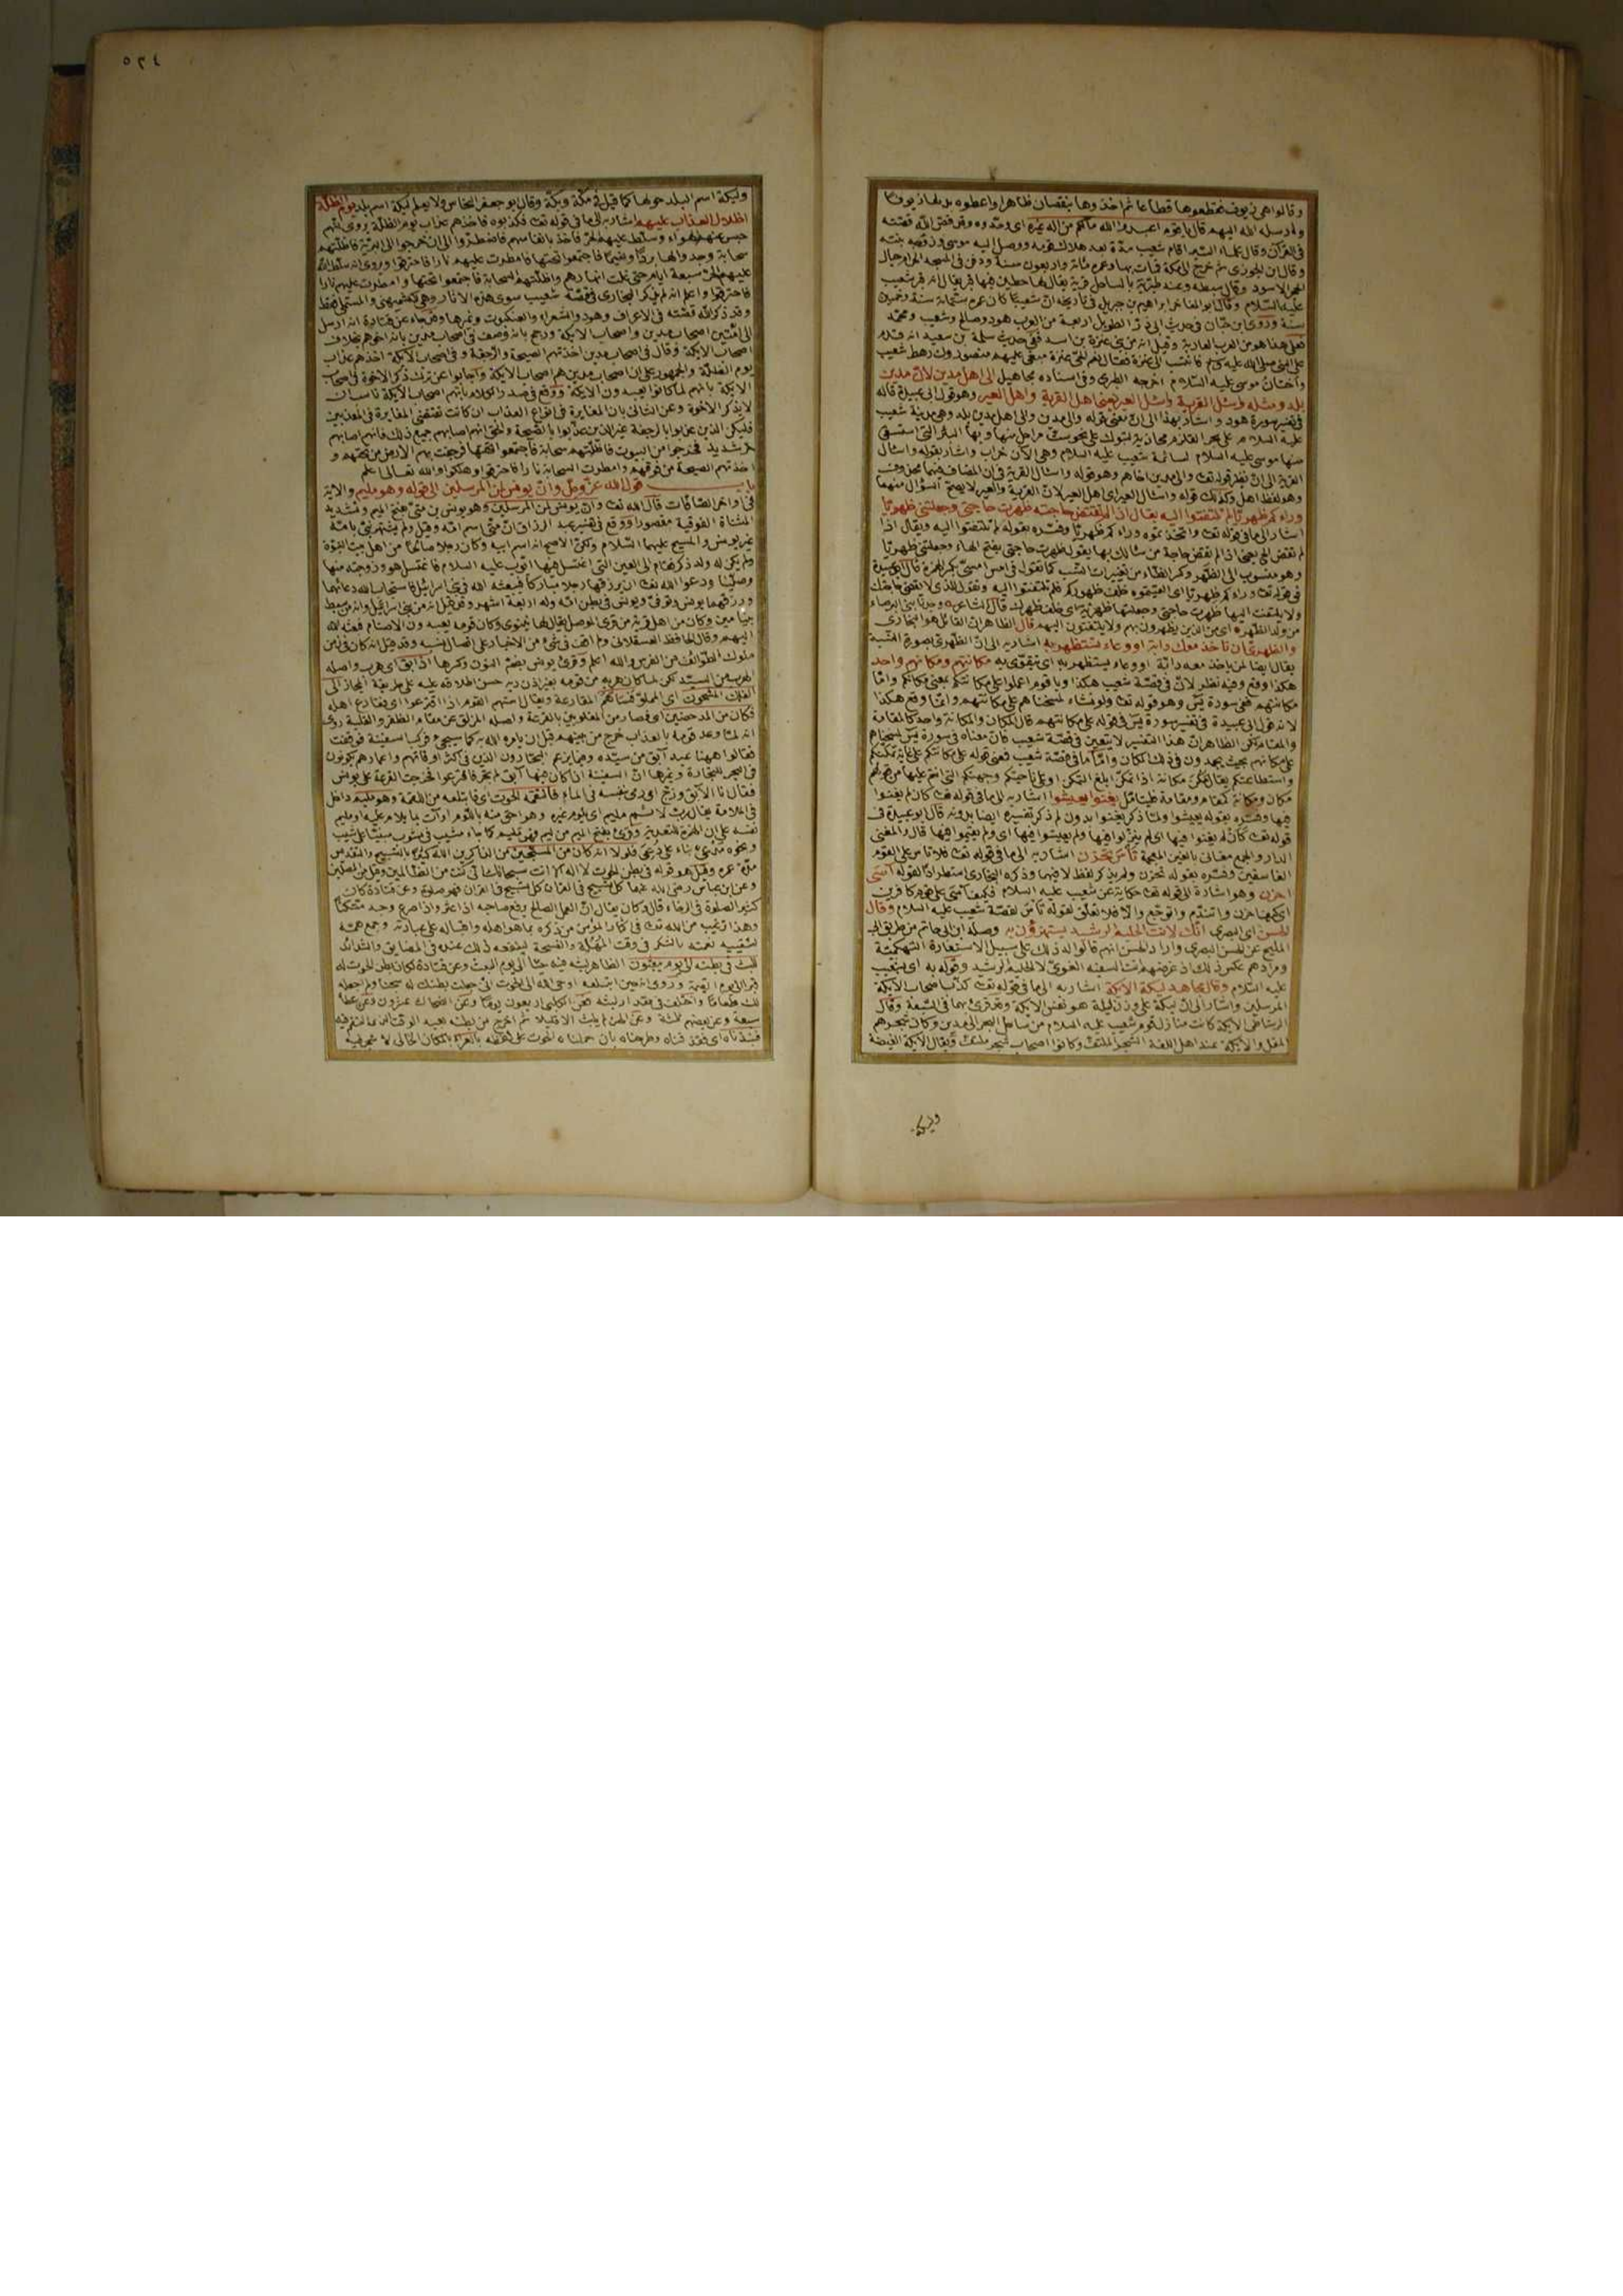 وقالوا هي زيوف فقطعوها قطاعا ثم اخذوها بنقصان ظاهر واعطوه بدلها زيوفا
ولم رسله الله اليهم قال يا قوم اعبدوا الله مالكم من اله غيره اى وحدوه وقد قص الله قصته
في القرآن وقال علماء السير اقام شعيب مدة بعد هلاك قومه ووصل اليه موسى وزوجه بنته
وقال ابن الجوزى ثم خرج الى مكة فمات بها وعمره مائة واربعون سنة ودفن في المسجد الحرام حيال
الحجر الاسود وقال سبطه وعند طبرية بالساحل قرية يقال لها حطين فيها قبر يقال انه قبر شعيب
عليه السلام وقال ابو المفاخر ابراهيم بن جبريل في تاريخه ان شعيبا كان عمره ستمائة سنة وخمسين
سنة وروى ابن حبان في حديث ابى ذر الطويل اربعة من العرب هود وصالح وشعيب ومحمد
فعلى هذا هو من العرب العاربة وقيل انه من بنى عنزة بن اسد ففى حديث سلمة بن سعيد انه قدم
على النبى صلى الله عليه وسلم فانتسب الى عنزة فقال نعم الحى عنزة مبغى عليهم منصورون رهط شعيب
واختان موسى عليه السلام اخرجه الطبرى وفى اسناده مجاهيل الى اهل مدين لان مدين
بلد ومثله واسئل القرية واسئل العير يعنى اهل القرية واهل العير وهو قول ابى عبيدة قاله
في تفسير سورة هود واشار بهذا الى ان معنى قوله والى مدين والى اهل مدين بلد وهى مدينة شعيب
عليه السلام على بحر القلزم محاذية لتبوك على نحو ست مراحل منها وبها البئر التى استسقى
منها موسى عليه السلام لسائمة شعيب عليه السلام وهى الآن خراب واشار بقوله واسأل
القرية الى ان نظير قوله تعالى والى مدين اخاهم وهو قوله واسأل القرية في ان المضاف فيهما محذوف
وهو لفظ اهل وكذلك قوله واسأل العير اى اهل العير لان القرية والعير لا يصح السؤال منهما
وراءكم ظهريا لم تلتفتوا اليه يقال اذا لم تقض حاجته ظهرت حاجتى وجعلتنى ظهريا
اشار الى ما في قوله تعالى واتخذتموه وراءكم ظهريا وفسره بقوله لم تلتفتوا اليه ويقال اذا
لم تقض
وهو منسوب الى الظهر وكسر الظاء من تغييرات النسب كما تقول في امس امسى بكسر الهمزة قال ابو عبيدة
في قوله تعالى وراءكم ظهريا اى القيتموه خلف ظهوركم فلم تلتفتوا اليه وتقول للذى لا يقضى حاجتك
ولا يلتفت اليها ظهرت حاجتى وجعلتها ظهرية اى خلف ظهرك قال الشاعر وجدنا بنى البرصاء
من ولد الظهر اى من الذين يظهرون بهم ولا يلتفتون اليهم قال الظاهر ان القائل هو البخارى
والظهرى ان تأخذ معك دابة او وعاء تستظهر به اشار به الى ان الظهرى بصورة النسبة
يقال ايضا لمن يأخذ معه دابة او وعاء يستظهر به اى يتقوى به مكانتهم ومكانهم واحد
هكذا وقع وفيه نظر لان في قصة شعيب هكذا ويا قوم اعملوا على مكانتكم بمعنى مكانكم واما
مكانتهم ففى سورة يس وهو قوله تعالى ولو نشاء لمسخناهم على مكانتهم وانما وقع هكذا
لانه قول ابى عبيدة في تفسير سورة يس في قوله على مكانتهم قال المكان والمكانة واحد كالمقامة
والمقام لكن الظاهر ان هذا التفسير لا يتعين في قصة شعيب
واستطاعتكم يقال تمكن مكانة اذا تمكن ابلغ التمكن او على ناحيتكم وجهتكم التى انتم عليها من قولهم
مكان ومكانة كمقام ومقامة فليتأمل يغنوا يعيشوا اشار به الى ما في قوله تعالى كان لم يغنوا
فيها وفسره بقوله يعيشوا
قوله تعالى كان لم يغنوا فيها اى لم ينزلوا فيها ولم يعيشوا فيها اى ولم يقيموا فيها قال والمغنى
الدار والجمع مغانى بالغين المعجمة تأس تحزن اشار به الى ما في قوله تعالى فلا تأس على القوم
الفاسقين وفسره بقوله تحزن ولم يذكر لفظ لا فيهما وذكره البخارى استطرادا لقوله آسى
احزن وهو اشارة الى قوله تعالى حكاية عن شعيب عليه السلام فكيف آسى على قوم كافرين
اى كيف احزن واتندم واتوجع والا فلا تعلق لقوله تأس لقصة شعيب عليه السلام وقال
الحسن اى البصرى انك لانت الحليم الرشيد يستهزؤن به وصله ابن ابى حاتم من طريق ابى
المليح عن الحسن البصرى واراد الحسن انهم قالوا له ذلك على سبيل الاستعارة التهكمية
ومرادهم عكس ذلك اذ غرضهم انت السفيه الغوى لا الحليم الرشيد وقوله به اى بشعيب
عليه السلام وقال مجاهد ليكة الايكة اشار به الى ما في قوله تعالى كذب اصحاب الايكة
المرسلين واشار الى ان ليكة على وزن ليلة هو نفس الايكة وقد قرئ بهما في السبعة وقال
الرشاطى الايكة كانت منازل قوم شعيب عليه السلام من ساحل البحر الى مدين وكان شجرهم
المقل والايكة عند اهل اللغة الشجر الملتف وكانوا اصحاب شجر ملتف ويقال الايكة الغيضة
وليكة
٥٢٤
وليكة اسم البلد حولها كما قيل في مكة وبكة وقال ابو جعفر النحاس ولا يعلم ليكة اسم بلد يوم الظلة
اظلال العذاب عليهم اشار به الى ما في قوله تعالى فكذبوه فاخذهم عذاب يوم الظلة يروى انهم
حبس عنهم الهواء وسلط عليهم الحر فاخذ بانفاسهم فاضطروا الى ان خرجوا الى البرية فاظلتهم
سحابة وجدوا لها بردا ونسيما فاجتمعوا تحتها فامطرت عليهم نارا فاحترقوا وروى انه سلط الله
عليهم الحر سبعة ايام حتى غلت انهارهم واظلتهم السحابة فاجتمعوا تحتها وامطرت عليهم نارا
فاحترقوا واعلم انه لم يذكر البخارى في قصة شعيب سوى هذه الآثار وهى للكشميهنى والمستملى فقط
وقد ذكر الله قصته في الاعراف وهود والشعراء والعنكبوت وغيرها وقد جاء عن قتادة انه ارسل
الى امتين اصحاب مدين واصحاب الايكة ورجح بانه وصف في اصحاب مدين بانه اخوهم بخلاف
اصحاب الايكة وقال في اصحاب مدين اخذتهم الصيحة والرجفة وفى اصحاب الايكة اخذهم عذاب
يوم الظلة والجمهور على ان اصحاب مدين هم اصحاب الايكة واجابوا عن ترك ذكر الاخوة في اصحاب
الايكة بانهم لما كانوا يعبدون الايكة ووقع في صدر الكلام بانهم اصحاب الايكة ناسب ان
لا يذكر الاخوة وعن الثانى بان المغايرة في انواع العذاب ان كانت تقتضى المغايرة في المعذبين
فليكن الذين عذبوا بالرجفة غير الذين عذبوا بالصيحة والحق انهم اصابهم جميع ذلك فانهم اصابهم
حر شديد فخرجوا من البيوت فاظلتهم سحابة فاجتمعوا تحتها فرجفت بهم الارض من تحتهم و
اخذتهم الصيحة من فوقهم وامطرت السحابة نارا فاحترقوا وهلكوا والله تعالى اعلم
باب قول الله عز وجل وان يونس لمن المرسلين الى قوله وهو مليم والآية
في اواخر الصافات قال الله تعالى وان يونس لمن المرسلين وهو يونس بن متى بفتح الميم وتشديد
المثناة الفوقية مقصورا ووقع في تفسير عبد الرزاق ان متى اسم امه وقيل ولم يشتهر نبى بامه
غير يونس والمسيح عليهما السلام ولكن الاصح انه اسم ابيه وكان رجلا صالحا من اهل بيت النبوة
ولم يكن له ولد ذكر فقام الى العين التى اغتسل فيها ايوب عليه السلام فاغتسل هو وزوجته منها
وصليا ودعوا الله تعالى ان يرزقهما رجلا مباركا فيبعثه الله في بنى اسرائيل فاستجاب الله دعائهما
ورزقهما يونس وتوفى ويونس في بطن امه وله اربعة اشهر وقد قيل انه من بنى اسرائيل وانه من سبط
بنيامين وكان من اهل قرية من قرى الموصل يقال لها نينوى وكان قومه يعبدون الاصنام فبعثه الله
اليهم وقال الحافظ العسقلانى ولم اقف في شئ من الاخبار على اتصال نسبه وقد قيل انه كان في زمن
ملوك الطوائف من الفرس والله اعلم وقرئ يونس بضم النون وكسرها اذ ابق اى هرب واصله
الهرب من السيد لكن لما كان هربه من قومه بغير اذن ربه حسن اطلاقه عليه على طريقة المجاز الى
الفلك المشحون اى المملو فساهم المقارعة ويقال استهم القوم اذا اقترعوا اى فقارع اهله
فكان من المدحضين اى فصار من المغلوبين بالقرعة واصله المزلق عن مقام الظفر والغلبة روى
انه لما وعد قومه بالعذاب خرج من بينهم قبل ان يامره الله به كما سيجئ فركب السفينة فوقفت
فقالوا ههنا عبد آبق من سيده وفيما يزعم البحارون الذين في اكثر اوقاتهم واعمارهم يكونون
في البحر للتجارة وغيرها ان السفينة اذا كان فيها آبق لم تجر فاقترعوا فخرجت القرعة على يونس
فقال انا الآبق وزج اى رمى بنفسه في الماء فالتقمه الحوت اى فابتلعه من اللقمة وهو مليم داخل
في الملامة يقال رب لائم مليم اى يلوم غيره وهو احق منه باللوم او آت بما يلام عليه او مليم
نفسه على ان الهمزة للتعدية وقرئ بفتح الميم من ليم فهو مليم كما جاء مشيب في مشوب مبنيا على شيب
ونحوه مدعى بناء على دعى فلولا انه كان من المسبحين من الذاكرين الله كثيرا بالتسبيح والتقديس
مدة عمره وقيل هو قوله في بطن الحوت لا اله الا انت سبحانك انى كنت من الظالمين وقيل من المصلين
وعن ابن عباس رضى الله عنهما كل تسبيح في القرآن فهو صلوة وعن قتادة كان
كثير الصلوة في الرخاء قال وكان يقال ان العمل الصالح يرفع صاحبه اذا عثر واذا صرع وجد متكئا
وهذا ترغيب من الله تعالى في اكثار المؤمن من ذكره بما هو اهله واقباله على عبادته وجمع همه
لتقييد نعمته بالشكر في وقت المهلة والفسحة لينفعه ذلك عنده في المضايق والشدائد
للبث في بطنه الى يوم يبعثون الظاهر لبثه فيه حيا الى يوم البعث وعن قتادة لكان بطن الحوت له
قبرا الى يوم القيمة وروى انه حين ابتلعه اوحى الله الى الحوت انى جعلت بطنك له سجنا ولم اجعله
لك طعاما واختلف في مقدار لبثه فعن الكلبى اربعون يوما وعن الضحاك عشرون وعن عطاء
سبعة وعن بعضهم ثلثة وعن الحسن لم يلبث الا قليلا ثم اخرج من بطنه بعيد الوقت الذى التقم فيه
فنبذناه اى فقذفناه وطرحناه بان حملنا الحوت على لفظه بالعراء بالمكان الخالى لا شجر فيه